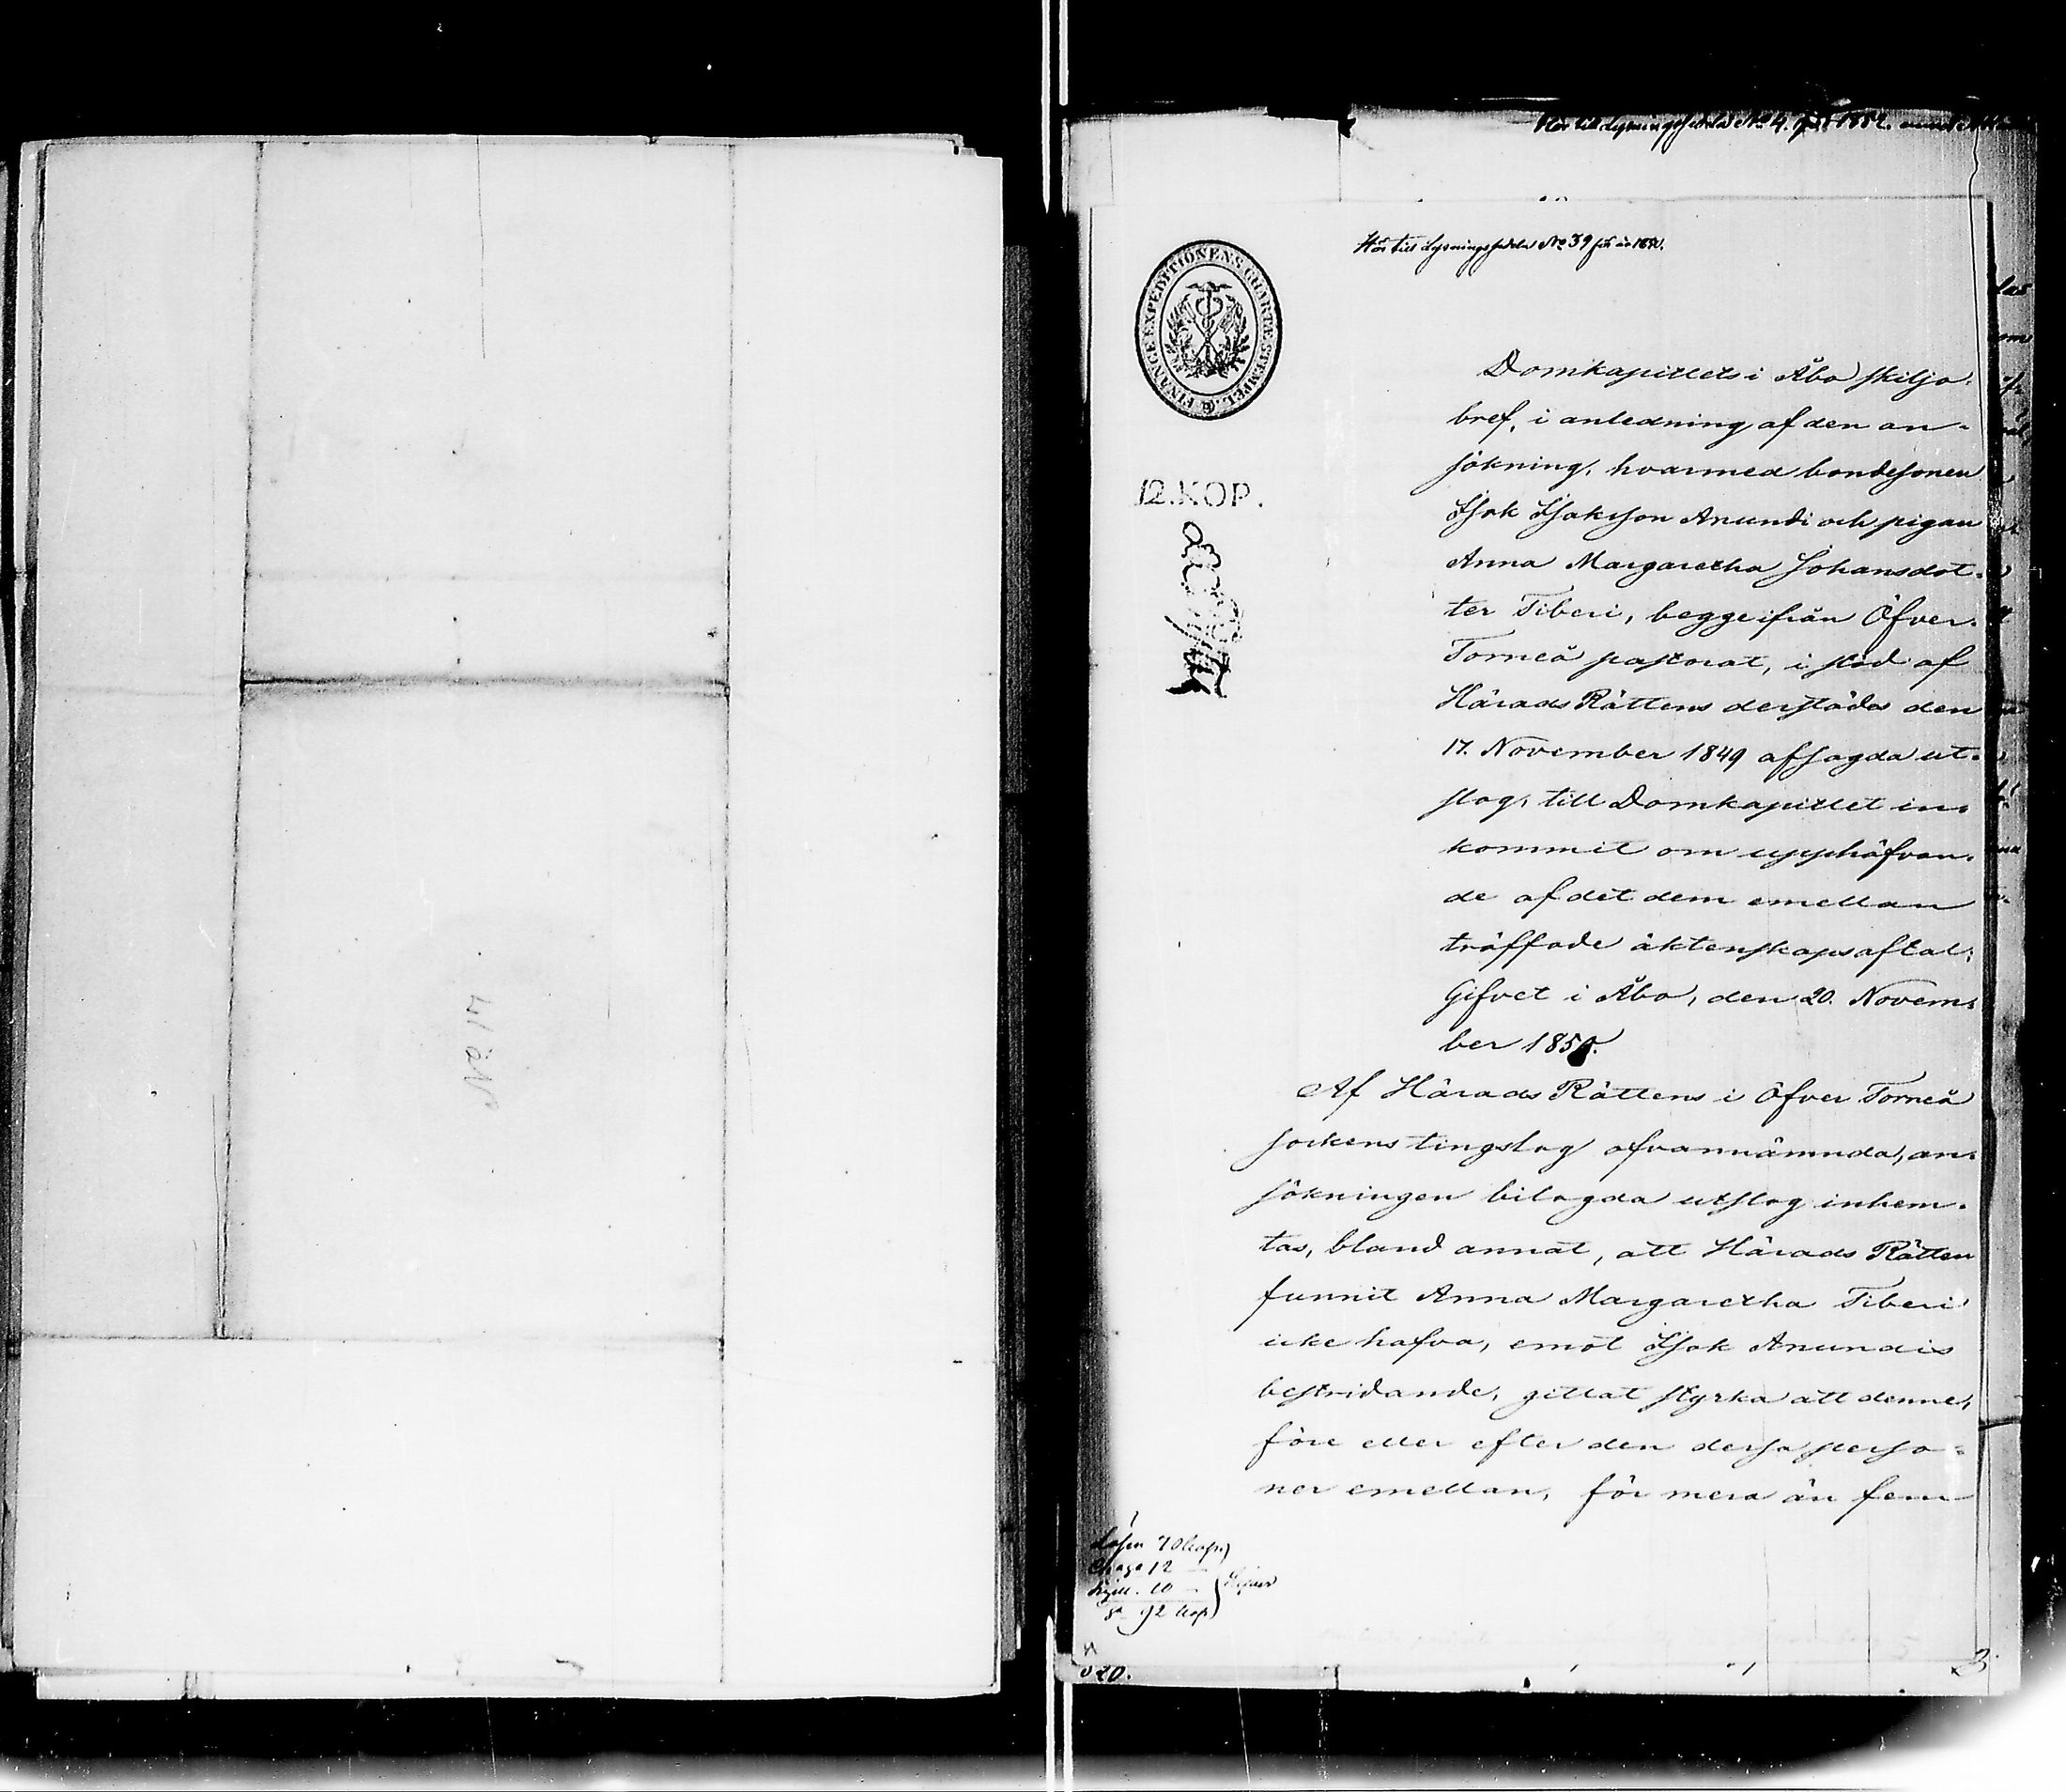 Hör till Lysningssedeln No 4. för 1852.
Hör till Lysningssedeln No 39 för år 1850.
FINANCE EXPEDITIONENS CHARTÆ STEMPEL.
12.KOP.
Domkapitlets i Åbo skiljo-
bref, i anledning af den an-
sökning, hvarmed bondesonen
Isak Isaksson Anundi och pigan
Anna Margaretha Johansdot-
ter Tiberi, begge ifrån Öfver-
Torneå pastorat, i stöd af
Härads Rättens derstädes den
17. November 1849 afsagda ut-
slag, till Domkapitlet in-
kommit om upphäfvan-
de af det dem emellan
träffade äktenskapsaftal;
Gifvet i Åbo, den 20. Novem-
ber 1850.
Af Härads Rättens i Öfver Torneå
sockens tingslag ofvannämnda, an-
sökningen bilagda utslag inhem-
tas, bland annat, att Härads Rätten
funnit Anna Margaretha Tiberi
icke hafva, emot Isak Anundis
bestridande, gittat styrka att denne,
före eller efter den dessa perso-
ner emellan, för mera än fem
Lösen 70 kop.
Charta 12 —
Sigill. 10 —
Sa 92 kop.
No 17
020.
3